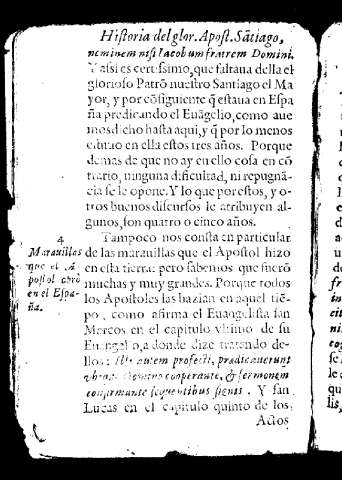 Historia del glor. Apost. Sãtiago,
neminem nisi Iacobum fratrem Domini.
Y assi es certissimo, que faltaua della el
glorioso Patrõ nuestro Santiago el Ma
yor, y por cõsiguiente q̃ estaua en Espa
ña predicando el Euãgelio, como aue
mos dicho hasta aqui, y q̃ por lo menos
estuuo en ella estos tres años. Porque
demas de que no ay en ello cosa en cõ
trario, ninguna dificultad, ni repugnã
cia se le opone. Y lo que por estos, y o-
tros buenos discursos le atribuyen al-
gunos, son quatro o cinco años.
Tampoco nos consta en particular
de las marauillas que el Apostol hizo
en esta tierra: pero sabemos que fuerõ
muchas y muy grandes. Porque todos
los Apostoles las hazian en aquel tiẽ-
po, como afirma el Euangelista san
Marcos en el capitulo vltimo de su
Euangelio, a donde dize tratando de-
llos: Illi autem profecti, prædicauerunt
vbique Domino cooperante, & sermonem
confirmante sequentibus signis. Y san
Lucas en el capitulo quinto de los
Actos
4
Marauillas
que el A-
postol obrò
en el Espa-
ña.